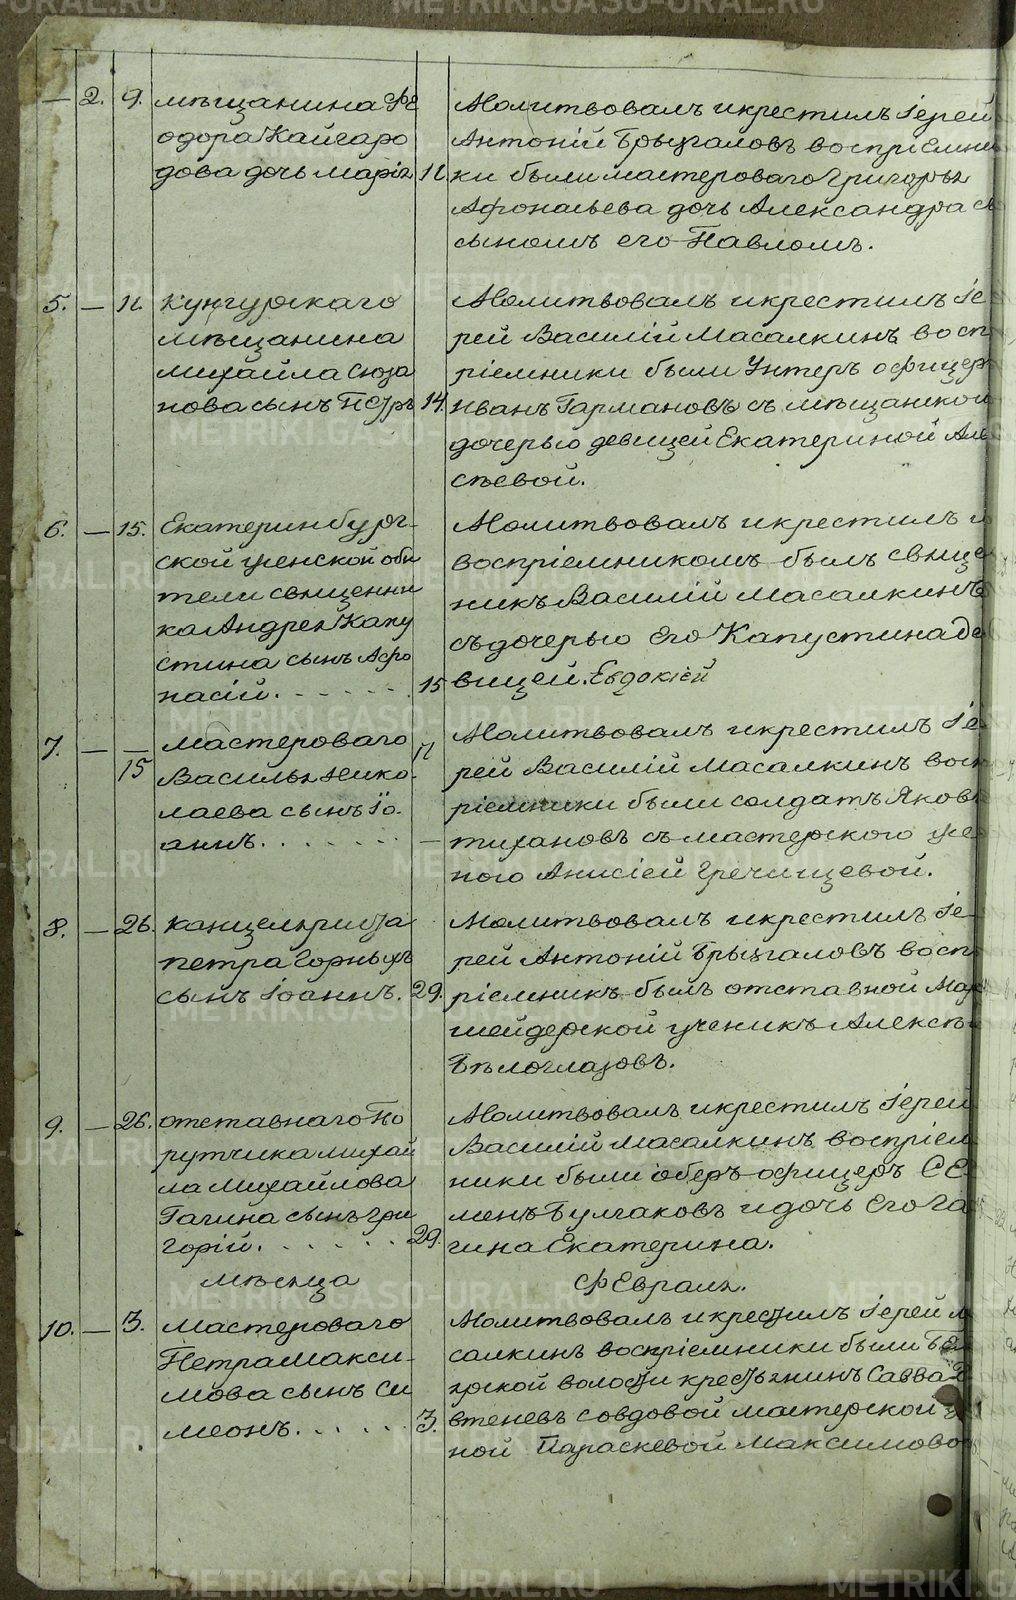 — 2. 9. мѣщанина Ѳе
одора Кайгаро
дова дочь Марія 11
Молитвовалъ и крестилъ Іерей
Антоній Брызгаловъ воспріемни
ки были мастероваго Григорья
Афонасьева дочь Александра съ
сыномъ его Павломъ.
5. — 11. Кунгурскаго
мѣщанина
Михайла Сюза
нова сынъ Петръ 14.
Молитвовалъ и крестилъ Іе
рей Василій Масалкинъ восп
ріемники были Унтеръ офицеръ
Иванъ Гармановъ съ мѣщанской
дочерью девицей Екатериной Але
сѣевой.
6. — 15. Екатеринбург-
ской женской оби
тели священни
ка Андрея Капу
стина сынъ Афо
насій. - - - - - - 15
Молитвовалъ и крестилъ и
воспріемникомъ былъ свяще
никъ Василій Масалкинъ
съ дочерью Его Капустина де
вицей. Евдокіей
7. — — 15 Мастероваго 17
Василья Нико-
лаева сынъ Іо-
аннъ. . . . . . . —
Молитвовалъ и крестилъ Іе
рей Василій Масалкинъ восп
ріемники были солдатъ Яковъ
Тихановъ съ мастерского же
ного Анисіей Гречищевой.
8. — 26. Канцеляриста
Петра Горныхъ
сынъ Іоаннъ. 29.
Молитвовалъ и крестилъ Іе-
рей Антоній Брызгаловъ восп
ріемникъ былъ отставной Мар
шейдерской ученикъ Алексѣ
Бѣлоглазовъ.
9. — 26. отставнаго По
рутчика Михай
ла Михайлова
Гагина сынъ Гри
горій. . . . . . 29.
Молитвовалъ и крестилъ Іерей
Василій Масалкинъ воспріем
ники были оберъ-офицеръ Се
менъ Булгаковъ и дочь Его Га
гина Екатерина.
мѣсяца Февраля.
10. — 3. Мастероваго
Петра Макси-
мова сынъ Си
меонъ. . . . . . 3.
Молитвовалъ и крестилъ Іерей М
салкинъ воспріемники были
ярской волости крестьянинъ Савва
втеневъ со вдовой мастерской
ной Параскевой Максимово
METRIKI.GASO-URAL.RU